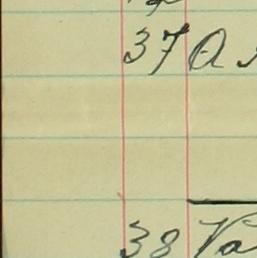 37 A
38 Va